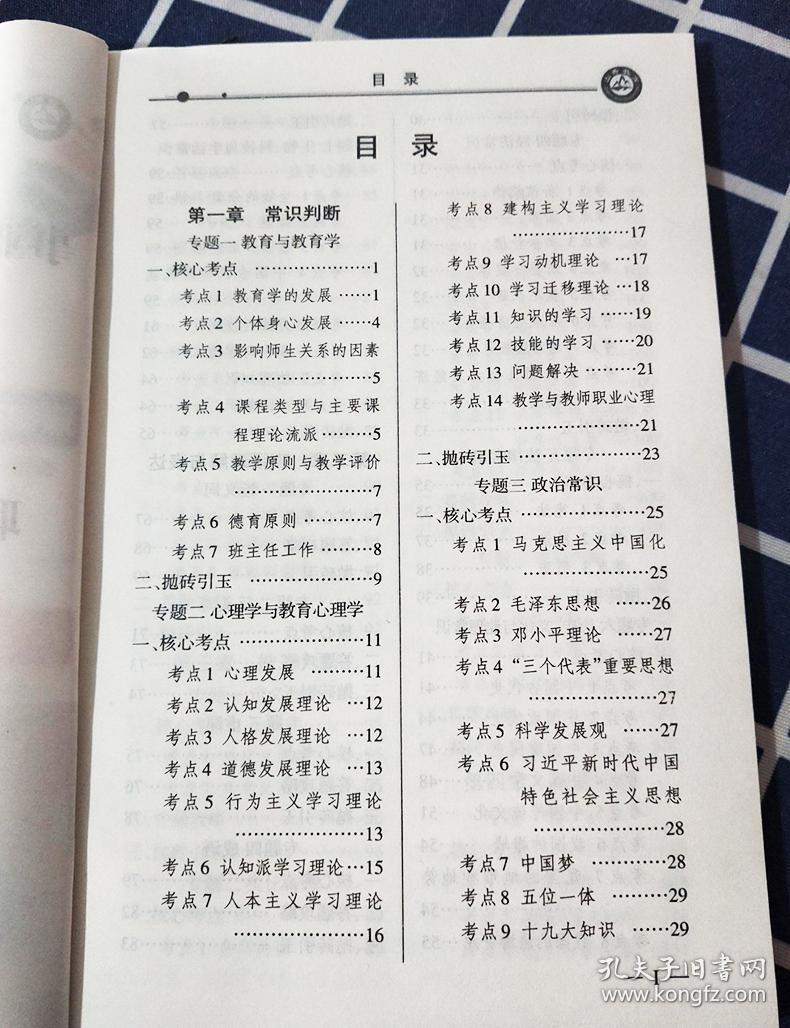 目 录
目 录
第一章 常识判断
专题一 教育与教育学
一、核心考点 ………………1
考点1 教育学的发展 ……1
考点2 个体身心发展 ……4
考点3 影响师生关系的因素
………………………5
考点4 课程类型与主要课
程理论流派 ………5
考点5 教学原则与教学评价
………………………7
考点6 德育原则 …………7
考点7 班主任工作 ………8
二、抛砖引玉 ………………9
专题二 心理学与教育心理学
一、核心考点 ………………11
考点1 心理发展 …………11
考点2 认知发展理论 …12
考点3 人格发展理论 …12
考点4 道德发展理论 …13
考点5 行为主义学习理论
………………………13
考点6 认知派学习理论…15
考点7 人本主义学习理论
………………………16
考点8 建构主义学习理论
………………………17
考点9 学习动机理论 …17
考点10 学习迁移理论 …18
考点11 知识的学习 ……19
考点12 技能的学习 ……20
考点13 问题解决 ………21
考点14 教学与教师职业心理
………………………21
二、抛砖引玉 ………………23
专题三 政治常识
一、核心考点 ………………25
考点1 马克思主义中国化
………………………25
考点2 毛泽东思想 ……26
考点3 邓小平理论 ……27
考点4 “三个代表”重要思想
………………………27
考点5 科学发展观 ……27
考点6 习近平新时代中国
特色社会主义思想
………………………28
考点7 中国梦 …………28
考点8 五位一体 ………29
考点9 十九大知识 ……29
— 1 —
孔夫子旧书网
www.kongfz.com